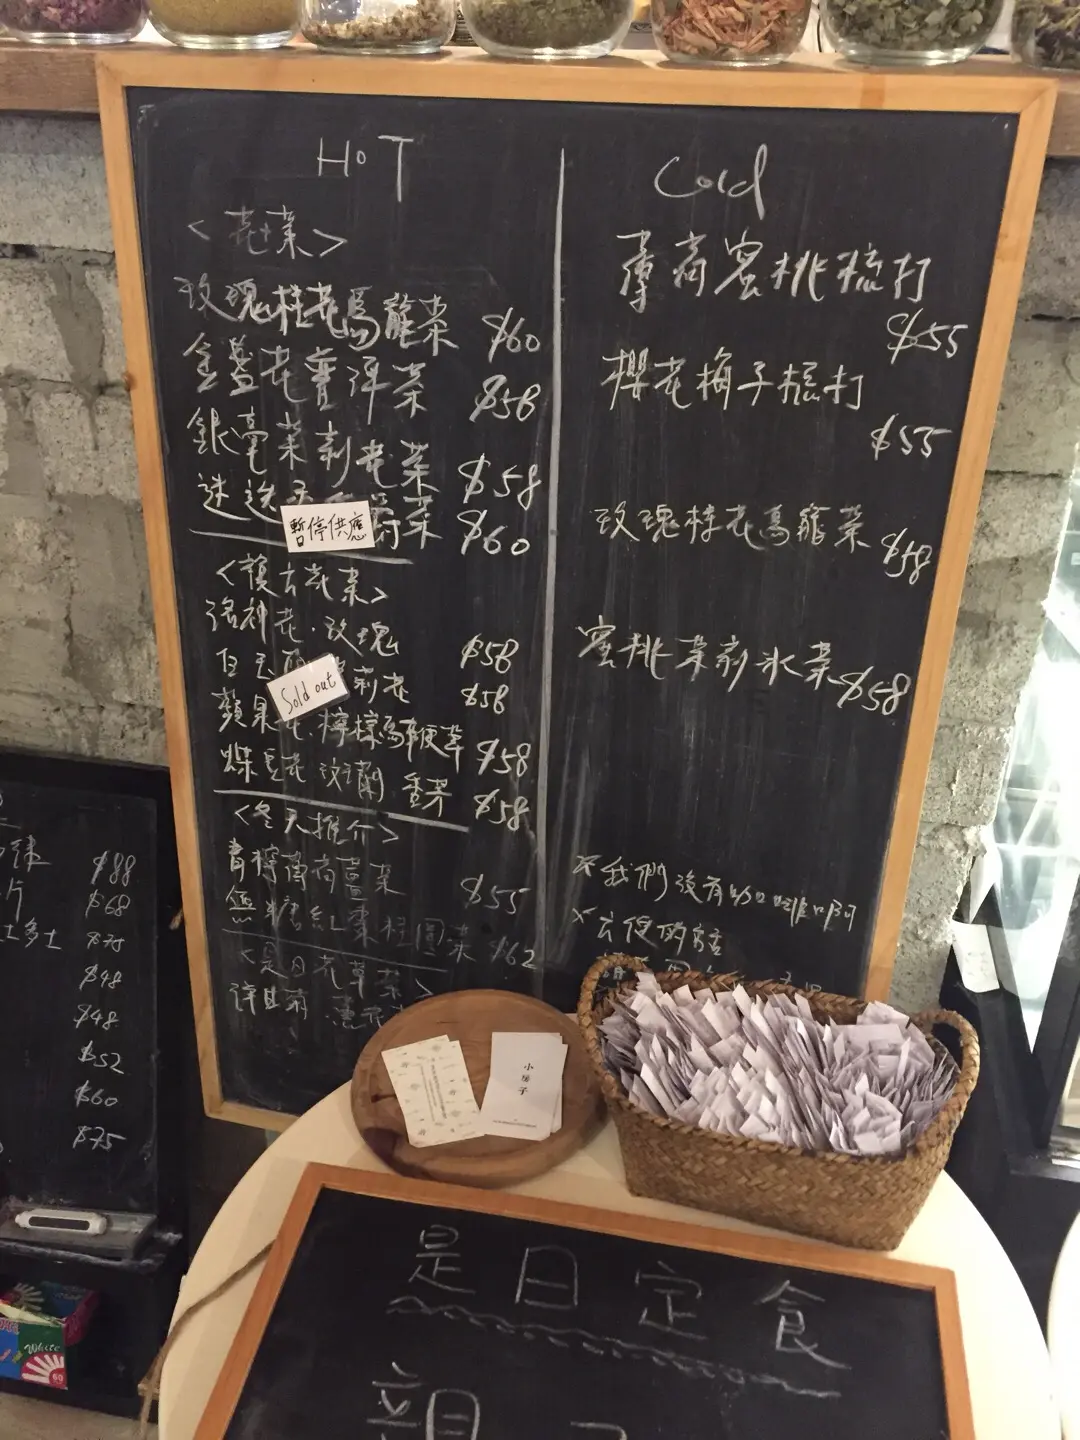 HOT
<花茶>
玫瑰桂花烏龍茶 $60
金盞花 茶 $58
銀毫茉莉花茶 $58
迷迭 茶 $60
暫停供應
<複方花茶>
洛神花·玫瑰 $58
白玉 莉花 $58
Sold out
蘋果花·檸檬馬鞭草 $58
蝶豆花 玫瑰 香茅 $58
<冬天推介>
青檸薄荷薑茶 $55
無糖紅棗桂圓茶 $62
<是日花草茶>
洋甘菊
Cold
薄荷蜜桃梳打
$55
櫻花梅子梳打
$55
玫瑰桂花烏龍茶 $58
蜜桃茉莉冰茶 $58
我們沒有
小房子
$88
片 $68
士多士 $75
$48
$48
$52
$60
$75
White
60
是日定食